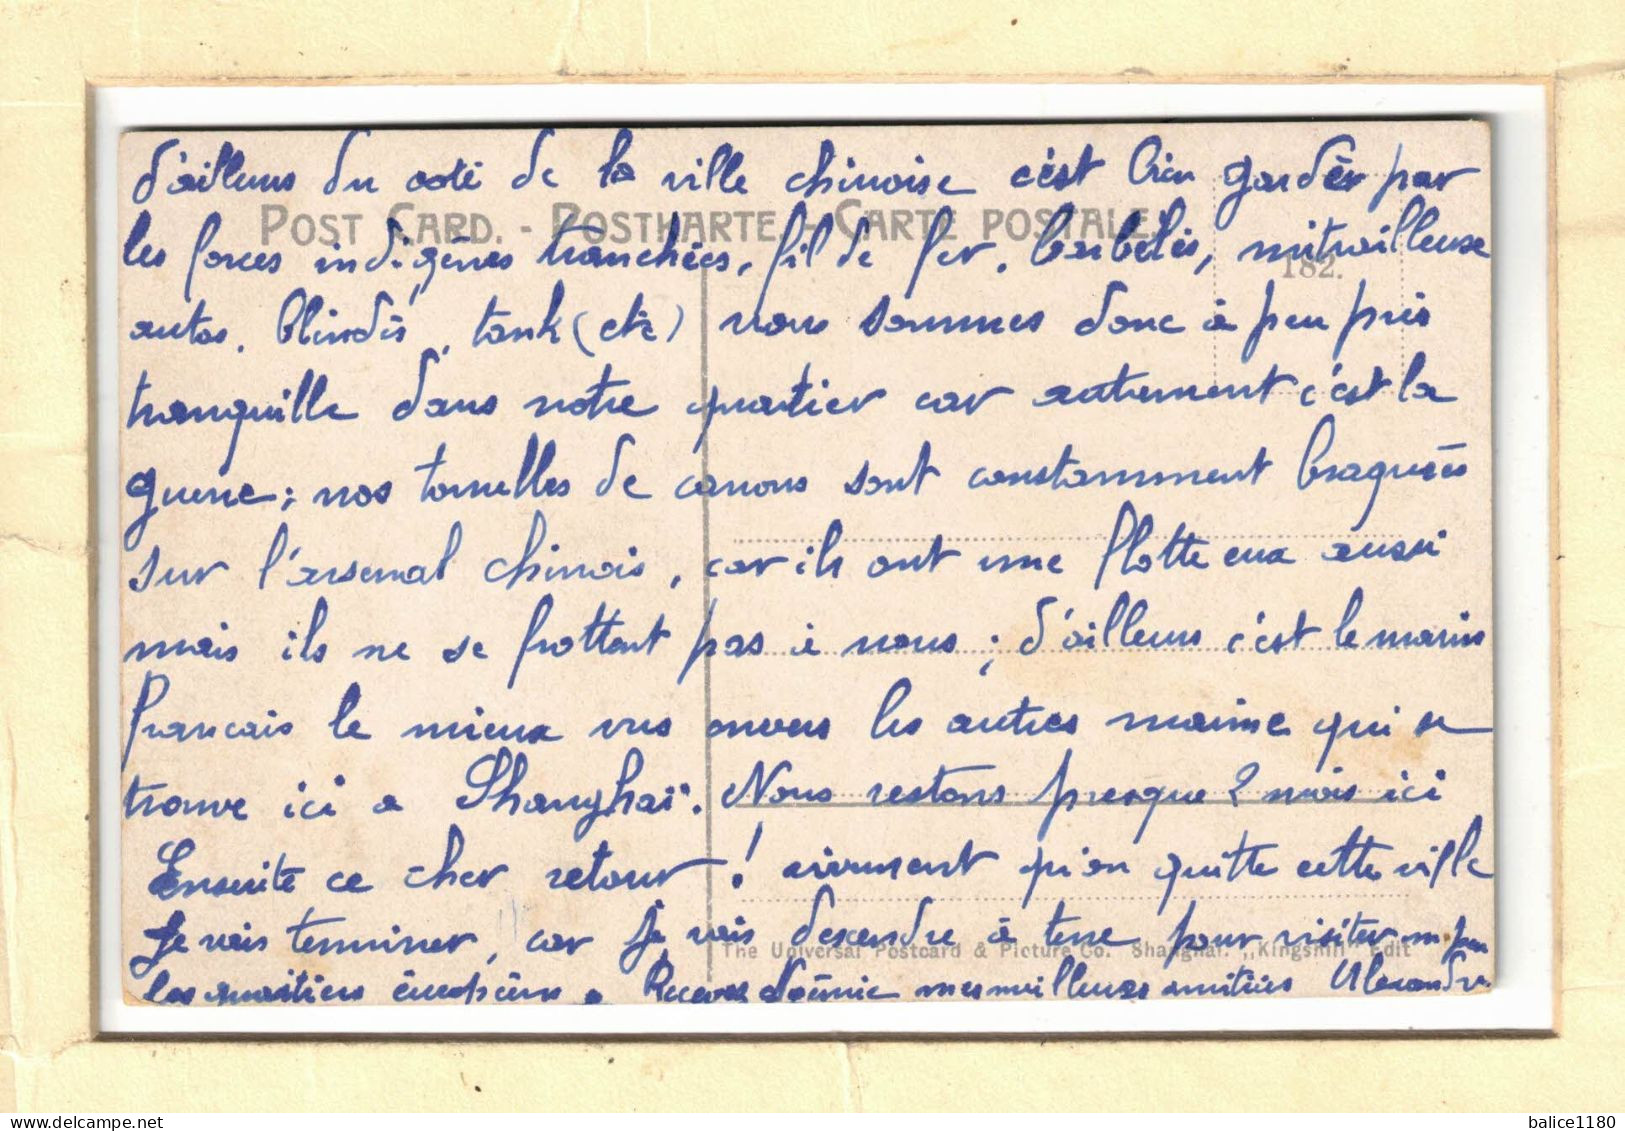 d'ailleurs du coté de la ville chinoise c'est bien gardèr par
POST CARD. - POSTKARTE. - CARTE POSTALE.
les forces indigènes tranchées, fil de fer, barbelés, mitrailleuse
182.
autos, blindés, tank (etc) nous sommes donc à peu près
tranquille dans notre quartier car autrement c'est la
guerre; nos tourelles de canons sont constamment braquées
sur l'arsenal chinois, car ils ont une flotte eux aussi
mais ils ne se frottent pas à nous; d'ailleurs c'est le marin
Francais le mieux vus envers les autres marine qui se
trouve ici a Shanghaï. Nous restons presque 2 mois ici
Ensuite ce cher retour! vivement qu'on quitte cette ville
Je vais terminer, car je vais descendre à terre pour visiter un peu
The Universal Postcard & Picture Co. Shanghai. „Kingshill" Edit
les quartiers européens. Recevez Noémie mes meilleures amitiés Alexandre
balice1180